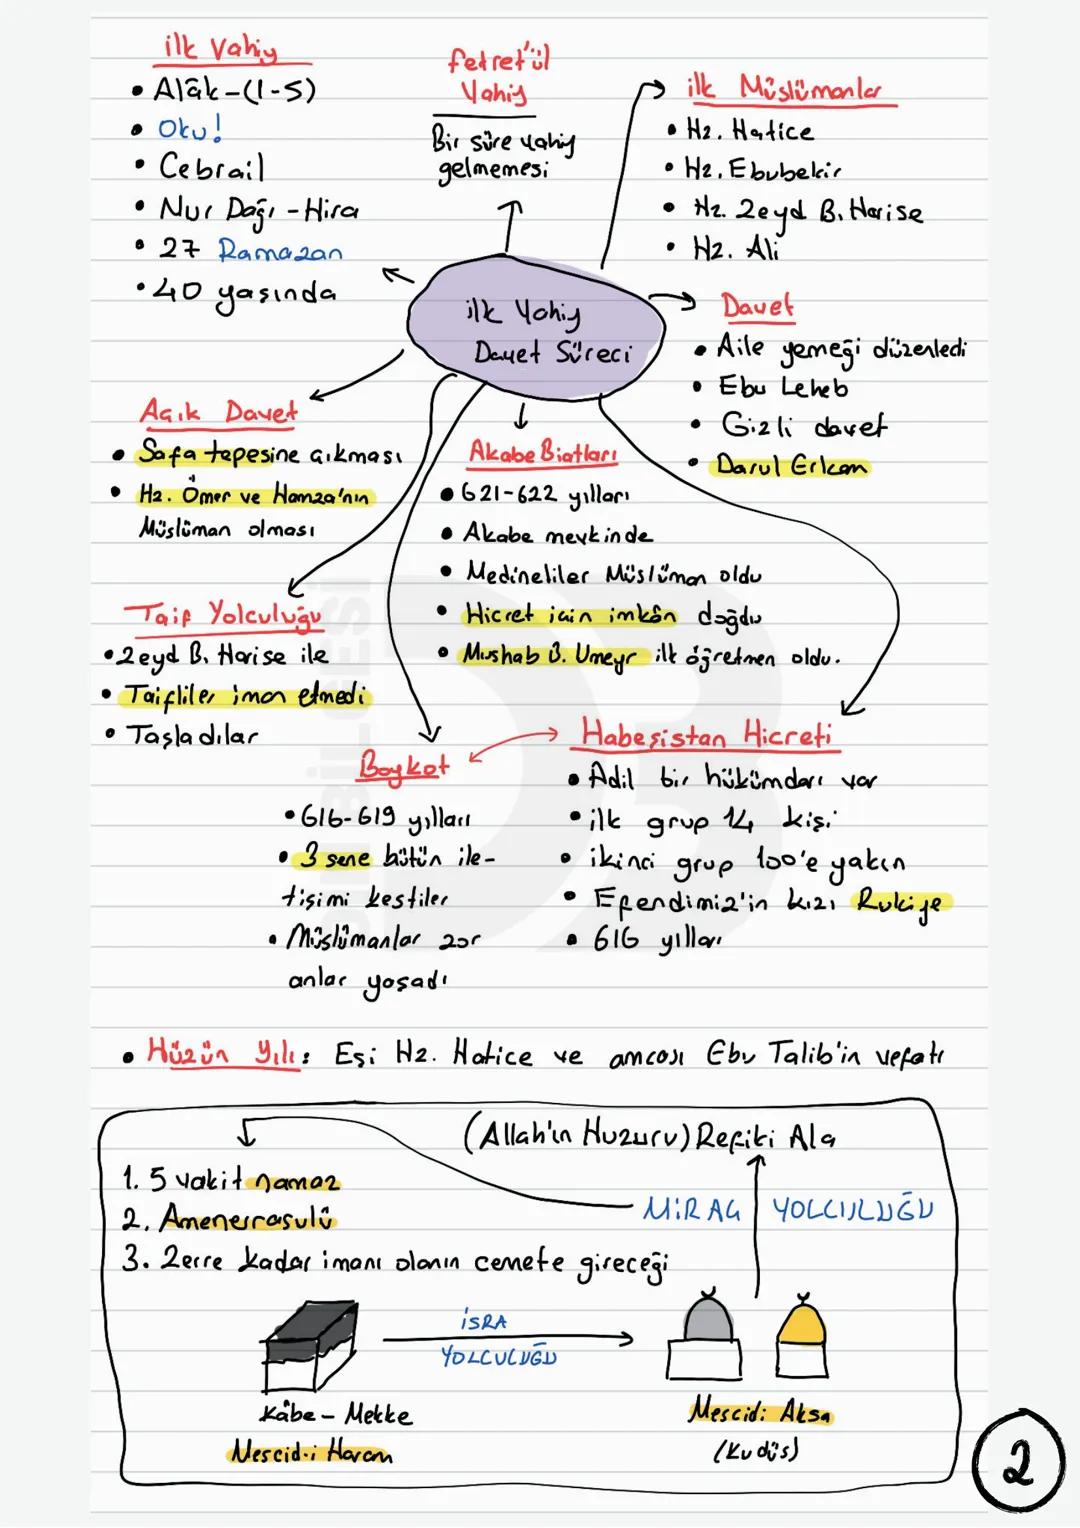 ilk Vahiy
• Alâk-(1-5)
• Oku!
• Cebrail
• Nur Dağı - Hira
• 27 Ramazan
• 40 yaşında
fetret'ül
Vahiy
Bir süre vahiy
gelmemesi
ilk Müslümanlar
• Hz. Hatice
• Hz. Ebubekir
• Hz. Zeyd B. Harise
• Hz. Ali
ilk Vahiy
Davet Süreci
Davet
• Aile yemeği düzenledi
• Ebu Leheb
• Gizli davet
• Darul Erkam
Açık Davet
• Safa tepesine çıkması
• Hz. Ömer ve Hamza'nın
Müslüman olması
Akabe Biatları
• 621-622 yılları
• Akabe mevkinde
• Medineliler Müslüman oldu
• Hicret için imkân doğdu
• Mushab B. Umeyr ilk öğretmen oldu.
Taif Yolculuğu
• Zeyd B. Harise ile
• Taifliler iman etmedi
• Taşladılar
Boykot
• 616-619 yılları
• 3 sene bütün ile-
tişimi kestiler
• Müslümanlar zor
anlar yaşadı
Habeşistan Hicreti
• Adil bir hükümdarı var
• ilk grup 14 kişi
• ikinci grup 100'e yakın
• Efendimiz'in kızı Rukiye
• 616 yılları
• Hüzün Yılı: Eşi Hz. Hatice ve amcası Ebu Talib'in vefatı
(Allah'ın Huzuru) Refiki Ala
1. 5 vakit namaz
2. Amenerrasulü
3. Zerre kadar imanı olanın cennete gireceği
MİRAÇ YOLCULUĞU
İSRA
YOLCULUĞU
Kâbe - Mekke
Mescid-i Haram
Mescidi Aksa
(Kudüs)
2